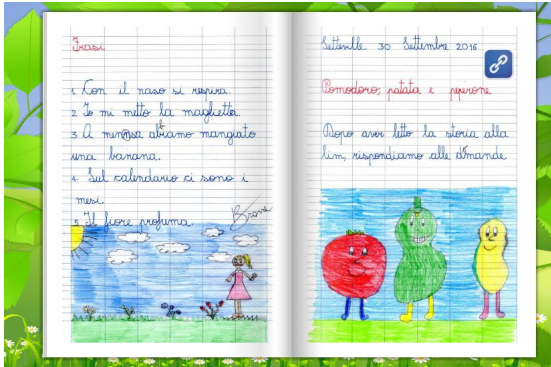 Frasi.
1 Con il naso si respira.
2 Io mi metto la maglietta.
3 A mensa abbiamo mangiato
una banana.
4. Sul calendario ci sono i
mesi.
5. Il fiore profuma.
Brava
Setteville 30 Settembre 2016
Pomodoro, patata e peperone
Dopo aver letto la storia alla
lim, rispondiamo alle domande